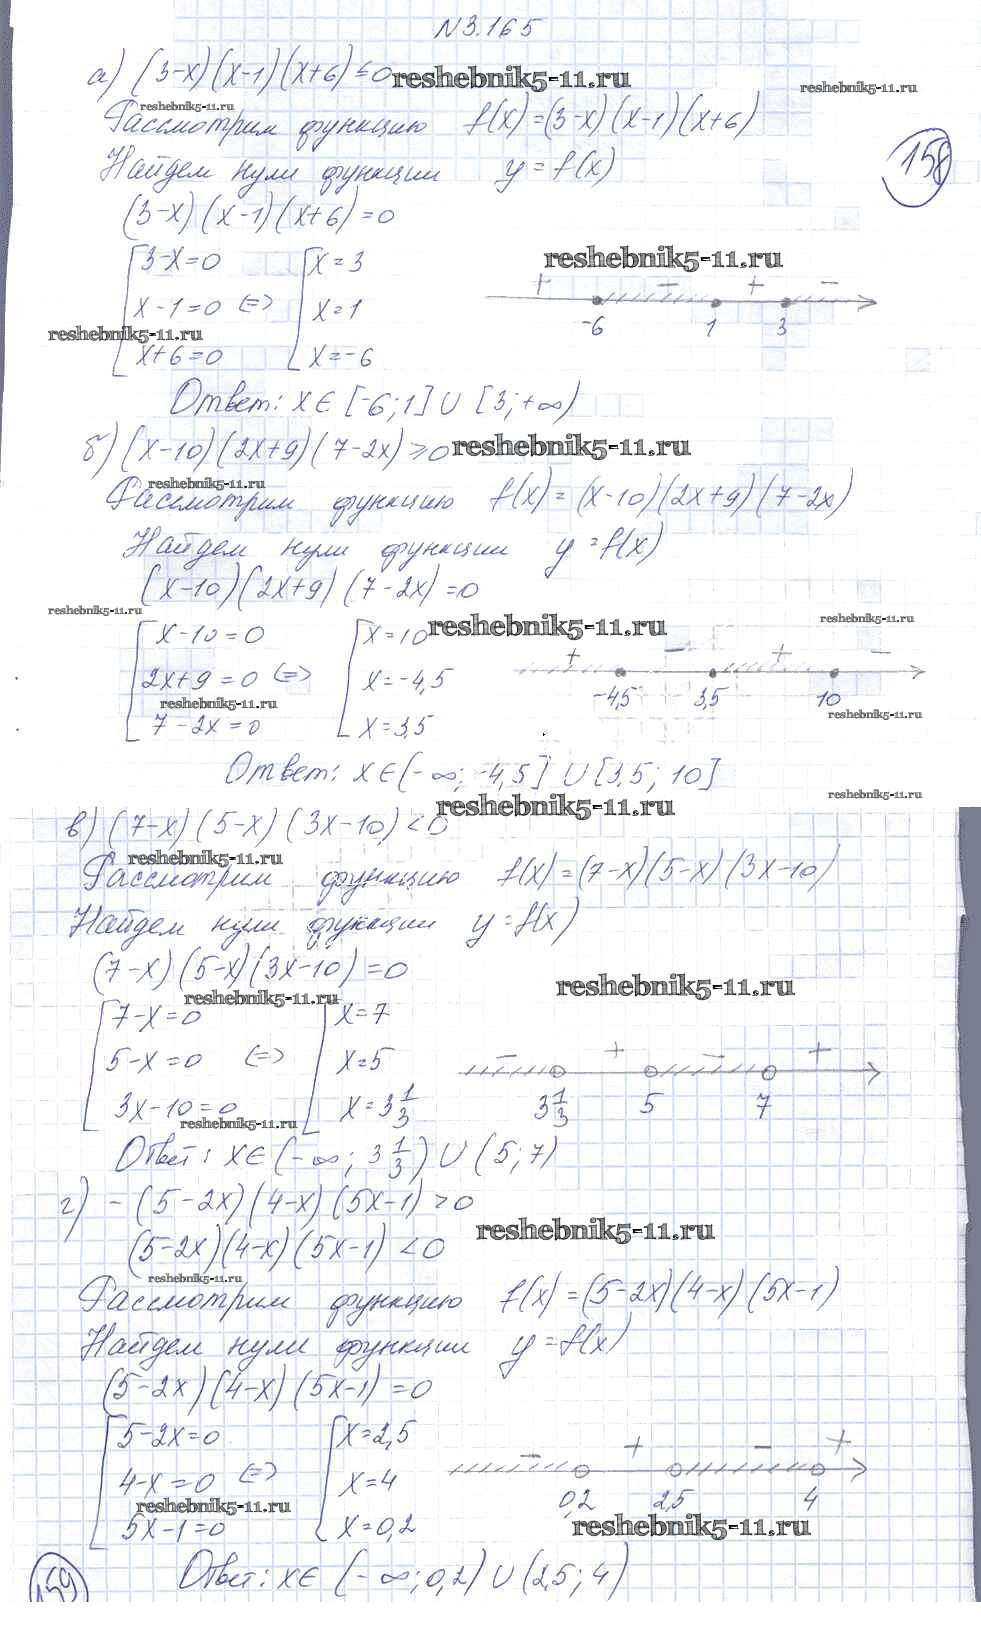 N 3.165
а) (3-x)(x-1)(x+6)≤0 reshebnik5-11.ru
reshebnik5-11.ru
reshebnik5-11.ru
Рассмотрим функцию f(x)=(3-x)(x-1)(x+6)
Найдем нули функции y=f(x)
158
(3-x)(x-1)(x+6)=0
3-x=0 x=3
reshebnik5-11.ru
x-1=0 <=> x=1
+ - + -
-6 1 3
reshebnik5-11.ru
x+6=0 x=-6
Ответ: x∈[-6;1]∪[3;+∞)
б) (x-10)(2x+9)(7-2x)≥0 reshebnik5-11.ru
reshebnik5-11.ru
Рассмотрим функцию f(x)=(x-10)(2x+9)(7-2x)
Найдем нули функции y=f(x)
(x-10)(2x+9)(7-2x)=0
reshebnik5-11.ru
reshebnik5-11.ru
x-10=0 x=10 reshebnik5-11.ru
2x+9=0 <=> x=-4,5
+ - + -
-4,5 3,5 10
reshebnik5-11.ru
reshebnik5-11.ru
7-2x=0 x=3,5
Ответ: x∈(-∞;-4,5]∪[3,5;10]
reshebnik5-11.ru
reshebnik5-11.ru
в) (7-x)(5-x)(3x-10)<0
reshebnik5-11.ru
Рассмотрим функцию f(x)=(7-x)(5-x)(3x-10)
Найдем нули функции y=f(x)
(7-x)(5-x)(3x-10)=0
reshebnik5-11.ru
reshebnik5-11.ru
7-x=0 x=7
5-x=0 <=> x=5
- + - +
3 1/3 5 7
3x-10=0 x=3 1/3
reshebnik5-11.ru
Ответ: x∈(-∞; 3 1/3)∪(5;7)
г) -(5-2x)(4-x)(5x-1)>0
reshebnik5-11.ru
(5-2x)(4-x)(5x-1)<0
reshebnik5-11.ru
Рассмотрим функцию f(x)=(5-2x)(4-x)(5x-1)
Найдем нули функции y=f(x)
(5-2x)(4-x)(5x-1)=0
5-2x=0 x=2,5
4-x=0 <=> x=4
- + - +
0,2 2,5 4
reshebnik5-11.ru
5x-1=0 x=0,2
reshebnik5-11.ru
Ответ: x∈(-∞;0,2)∪(2,5;4)
159